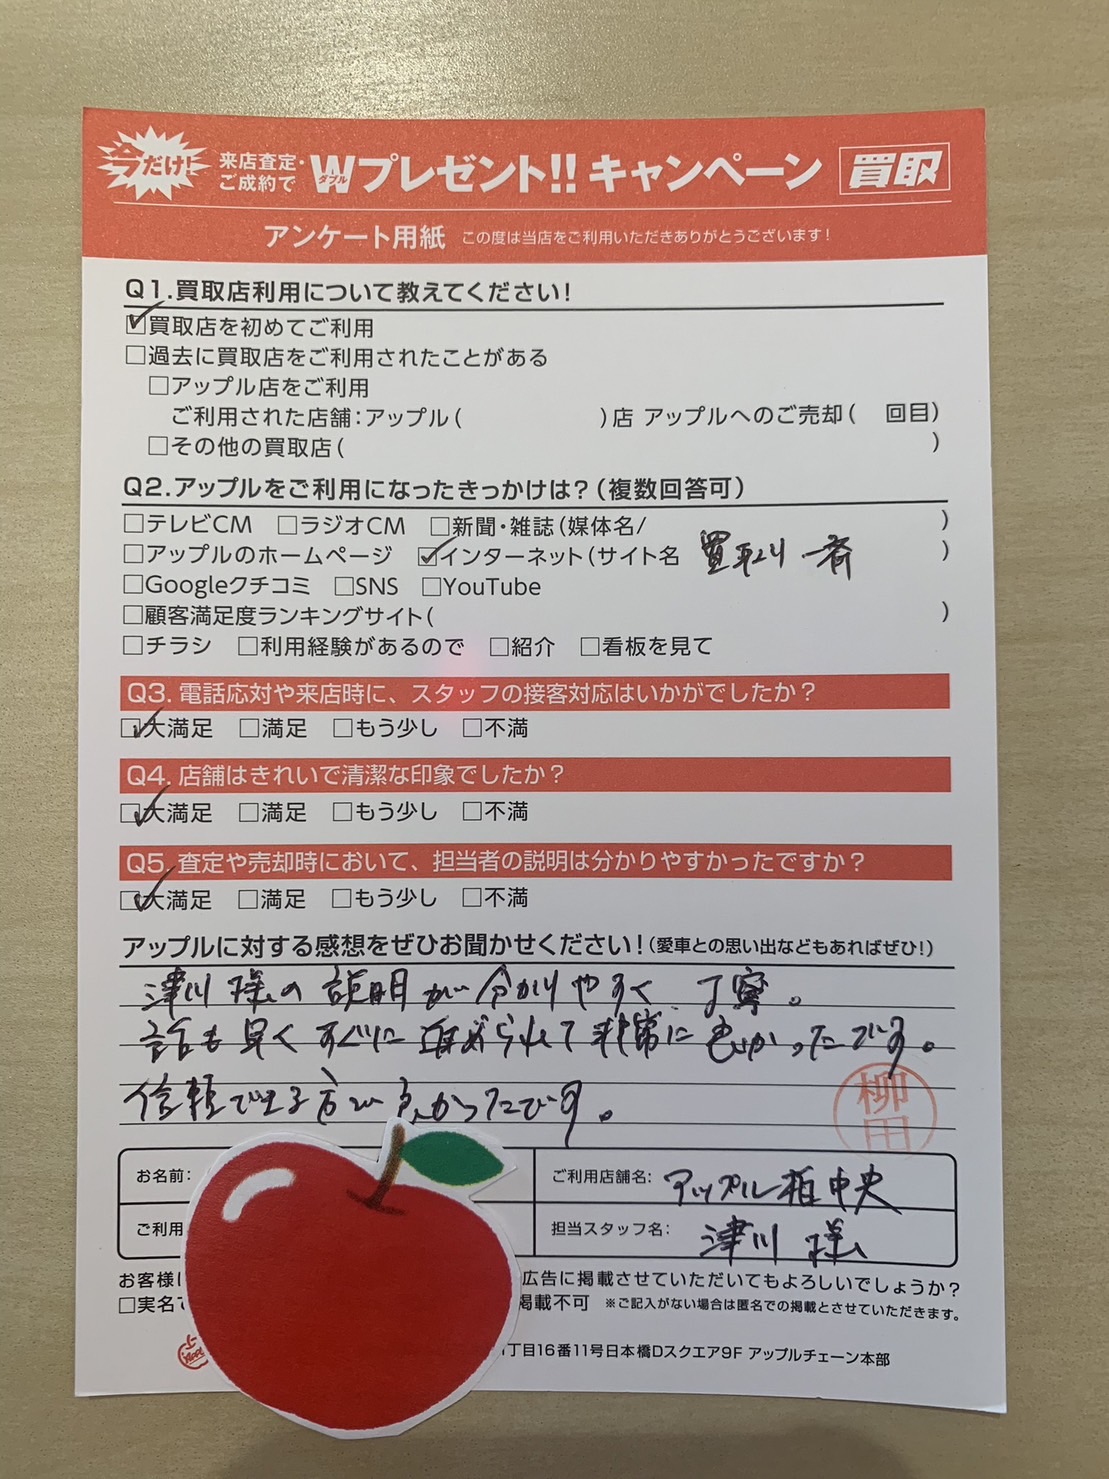 今だけ! 来店査定・ご成約で Wダブルプレゼント!! キャンペーン 買取
アンケート用紙 この度は当店をご利用いただきありがとうございます!
Q1.買取店利用について教えてください!
☑買取店を初めてご利用
□過去に買取店をご利用されたことがある
□アップル店をご利用
ご利用された店舗:アップル( )店 アップルへのご売却( 回目)
□その他の買取店( )
Q2.アップルをご利用になったきっかけは?(複数回答可)
□テレビCM □ラジオCM □新聞・雑誌(媒体名/ )
□アップルのホームページ ☑インターネット(サイト名 買取り一斉 )
□Googleクチコミ □SNS □YouTube
□顧客満足度ランキングサイト( )
□チラシ □利用経験があるので □紹介 □看板を見て
Q3. 電話応対や来店時に、スタッフの接客対応はいかがでしたか?
☑大満足 □満足 □もう少し □不満
Q4. 店舗はきれいで清潔な印象でしたか?
☑大満足 □満足 □もう少し □不満
Q5. 査定や売却時において、担当者の説明は分かりやすかったですか?
☑大満足 □満足 □もう少し □不満
アップルに対する感想をぜひお聞かせください!(愛車との思い出などもあればぜひ!)
津川様の説明が分かりやすく、丁寧。
話も早くすぐに進められて非常に良かったです。
信頼できる方で良かったです。
柳田
お名前: ご利用店舗名: アップル柏中央
ご利用 担当スタッフ名: 津川 様
お客様に 広告に掲載させていただいてもよろしいでしょうか?
□実名で 掲載不可 ※ご記入がない場合は匿名での掲載とさせていただきます。
1丁目16番11号日本橋Dスクエア9F アップルチェーン本部